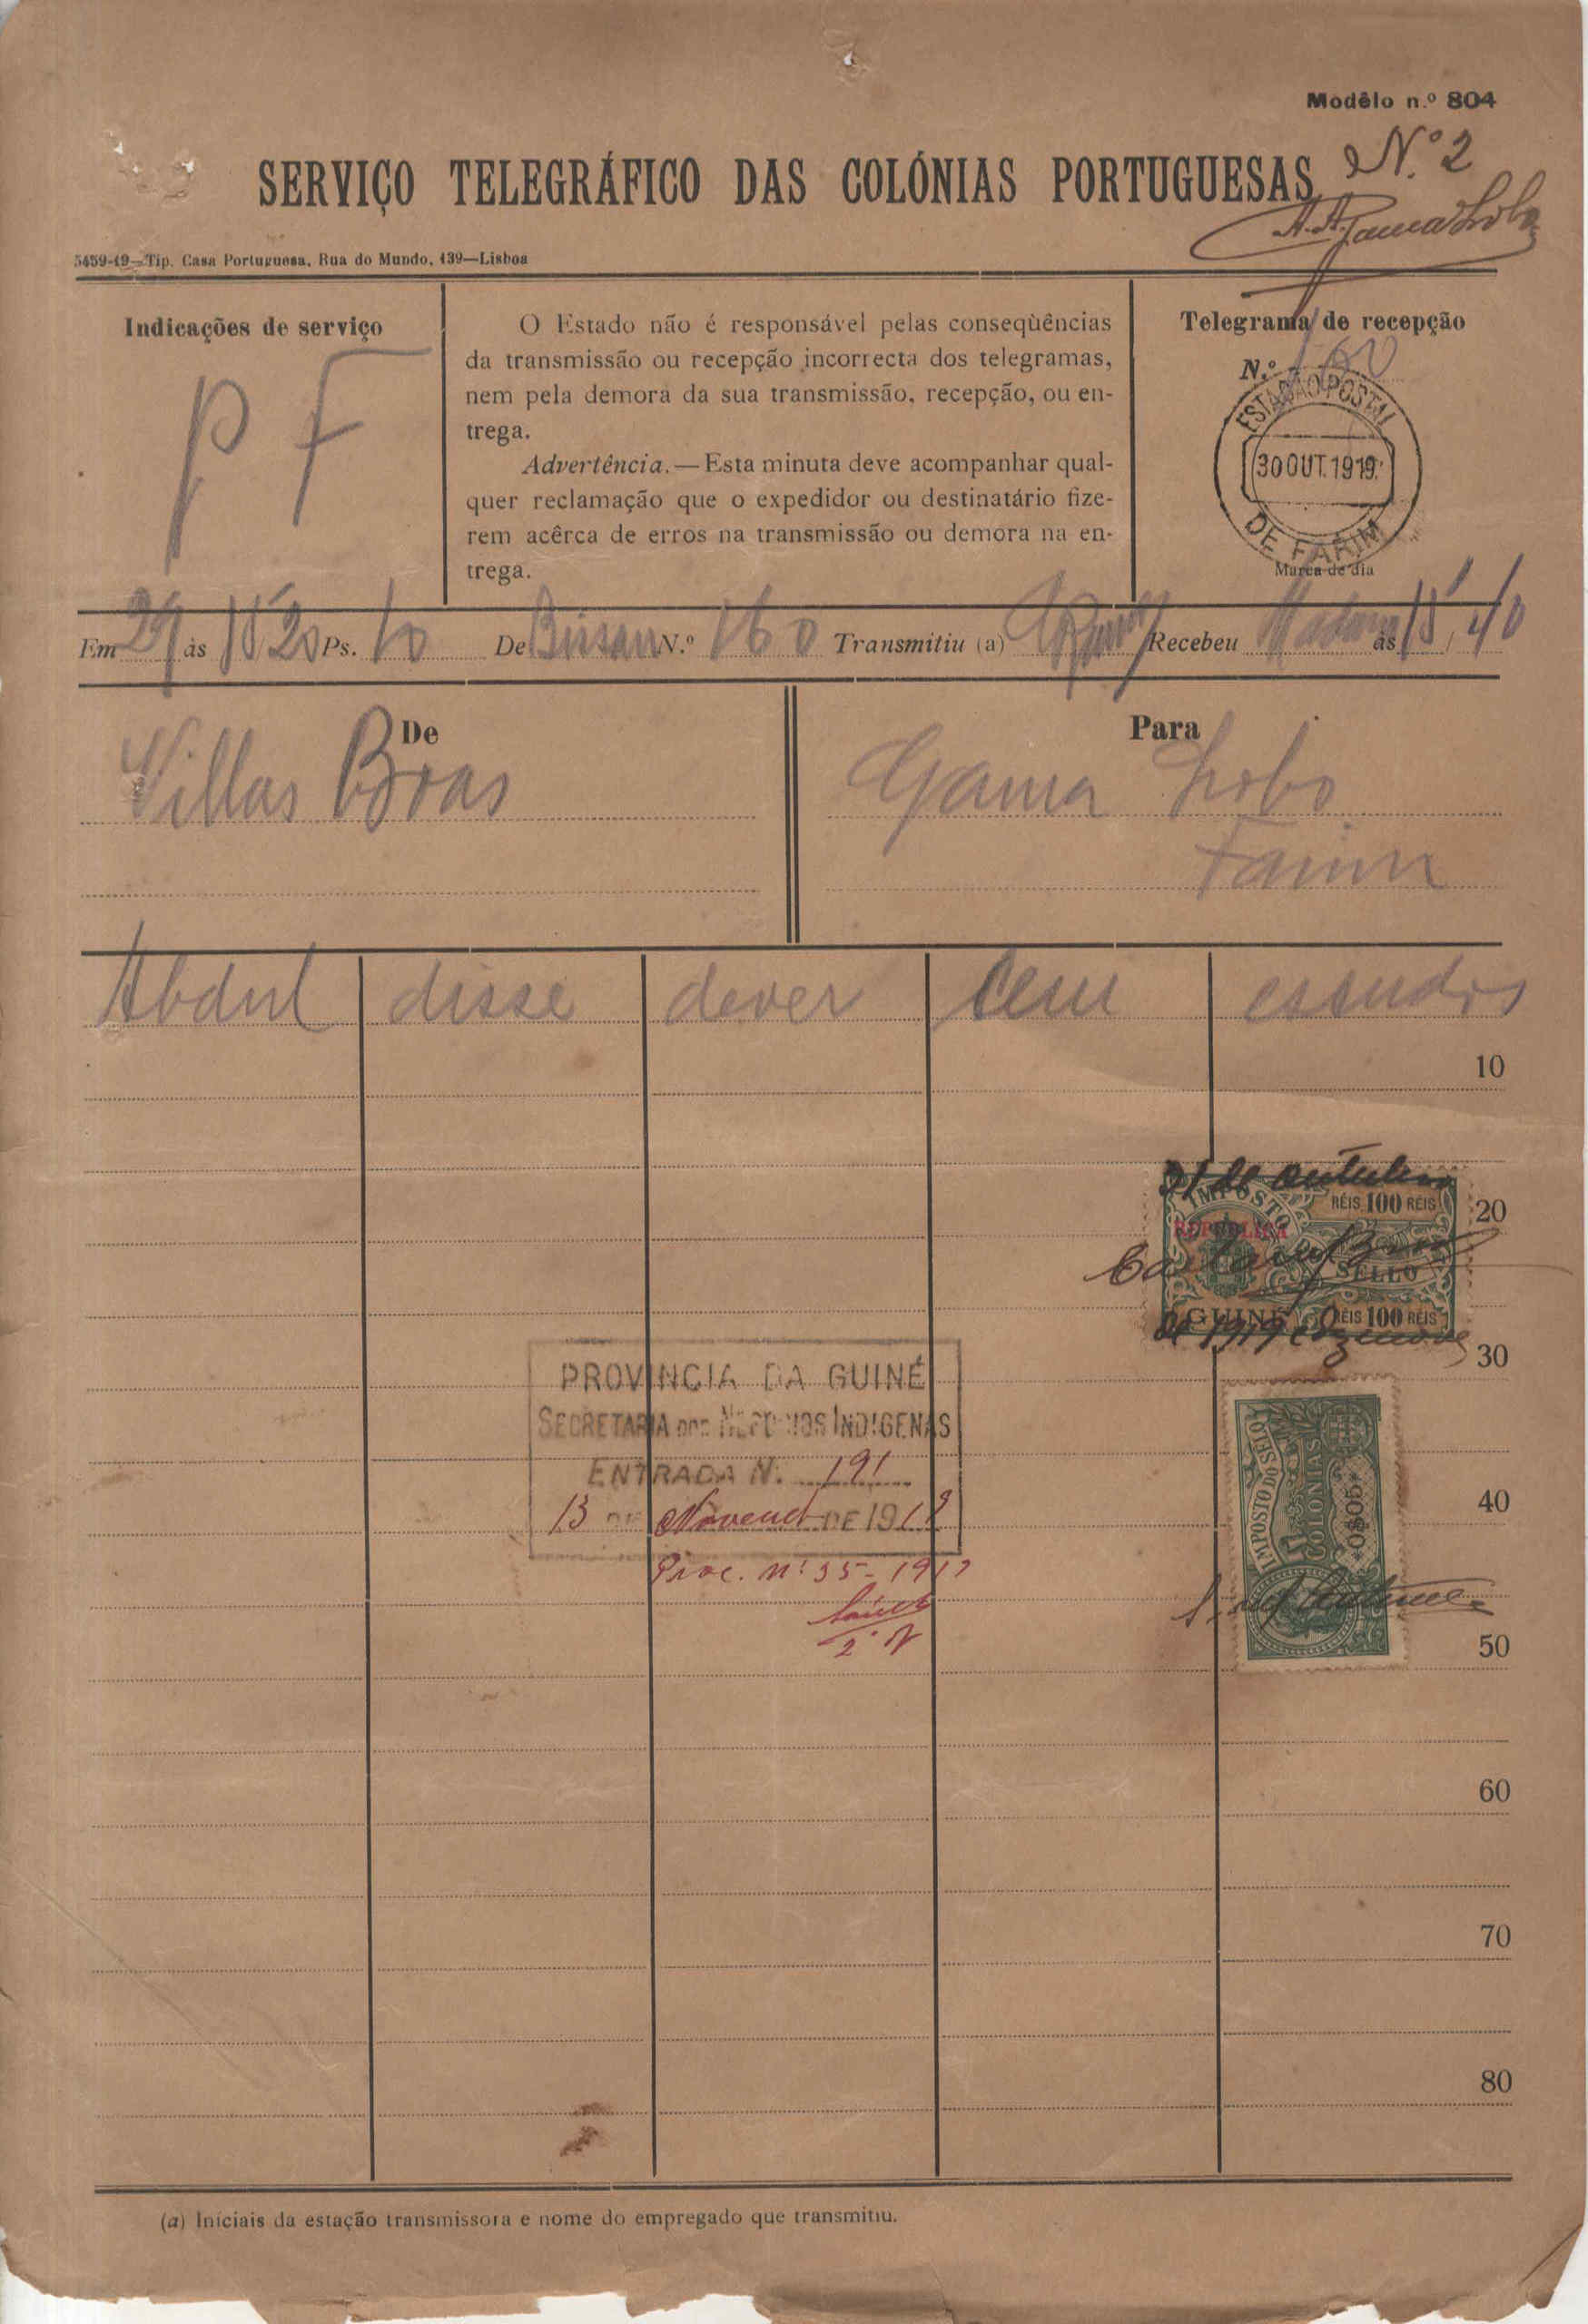 Modêlo n.º 804
N.º 2
SERVIÇO TELEGRÁFICO DAS COLÓNIAS PORTUGUESAS
A. A. Gama Lobo
5459-19—Tip. Casa Portuguesa, Rua do Mundo, 139—Lisboa
Indicações de serviço
P F
O Estado não é responsável pelas conseqùências
da transmissão ou recepção incorrecta dos telegramas,
nem pela demora da sua transmissão, recepção, ou en-
trega.
Advertência.—Esta minuta deve acompanhar qual-
quer reclamação que o expedidor ou destinatário fize-
rem acêrca de erros na transmissão ou demora na en-
trega.
Telegrama de recepção
N.º
ESTAÇÃO POSTAL
30 OUT. 1919
DE FARIM
Marca de dia
Em 29 às 15 20 Ps. 10 De Bissau N.º 160 Transmitiu (a) Recebeu às 15,40
De
Villas Boas
Para
Gama Lobo
Farim
Abdul disse dever cem escudos
10
31 de outubro
IMPOSTO
RÉIS 100 RÉIS
20
REPUBLICA
SELLO
GUINÉ
RÉIS 100 RÉIS
de 1919 e dezenove
30
PROVINCIA DA GUINÉ
SECRETARIA DOS NEGOCIOS INDIGENAS
ENTRADA N. 191
13 DE Novemb DE 1919
Proc. n.º 35-1919
2.º
IMPOSTO DO SELO
COLONIAS
0$05
40
50
60
70
80
(a) Iniciais da estação transmissora e nome do empregado que transmitiu.